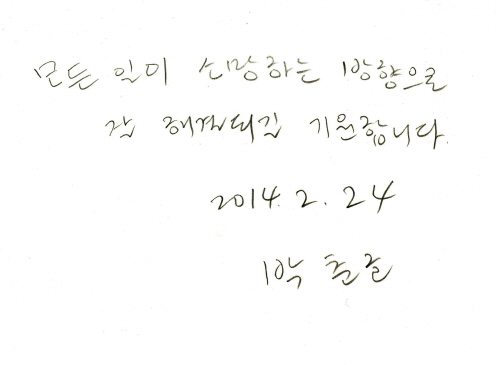 모든 일이 소망하는 방향으로
잘 해결되길 기원합니다.
2014. 2. 24
박